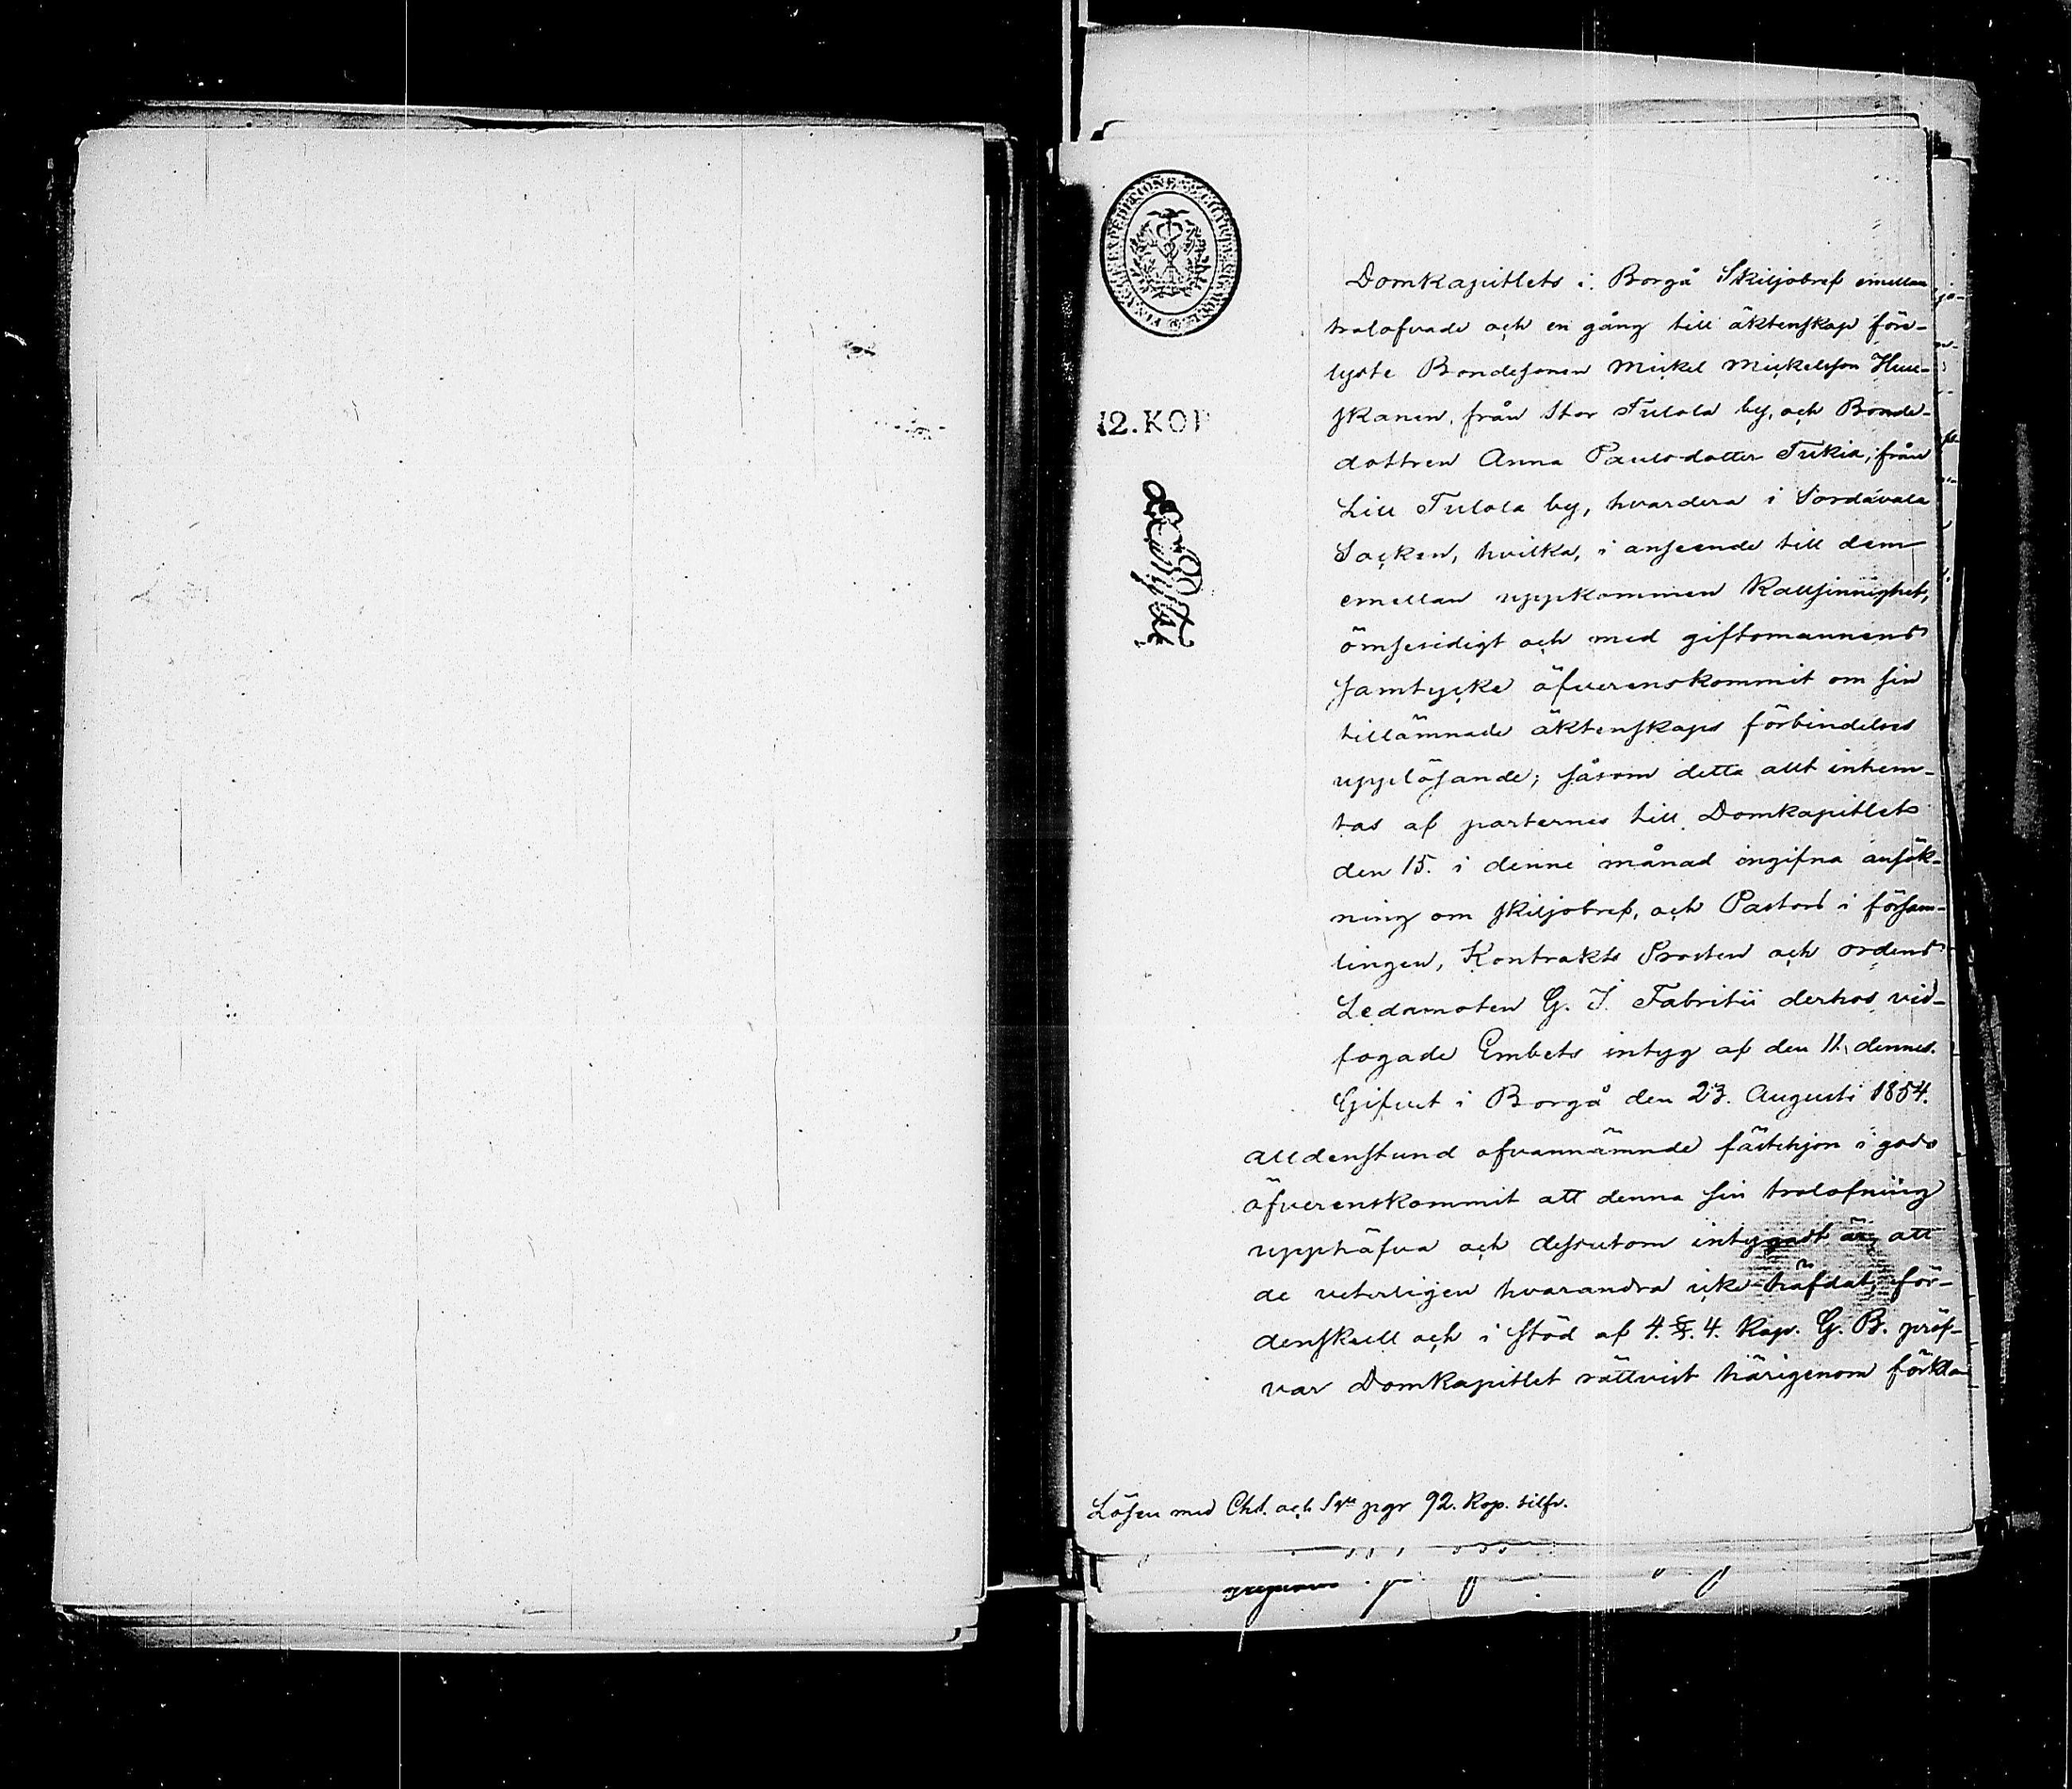 12. KOP
Domkapitlets i Borgå Skiljobref emellan
trolofvade och en gång till äktenskap före-
lyste Bondesonen Mickel Mickelsson Huu-
skanen, från Stor Tulola by, och Bonde-
dottren Anna Paulsdotter Tukia, från
Lill Tulola by, hvardera i Sordavala
Socken, hvilka, i anseende till dem
emellan uppkommen Kallsinnighet,
ömsesidigt och med giftomannens
samtycke öfverenskommit om sin
tillämnade äktenskaps förbindelses
upplösande; såsom detta allt inhem-
tas af parternes till Domkapitlet
den 15. i denne månad ingifna ansök-
ning om skiljobref, och Pastors i försam-
lingen, Kontrakts Prosten och ordens
Ledamoten G. J. Fabritii derhos vid-
fogade Embets intyg af den 11. dennes.
Gifvet i Borgå den 23. Augusti 1854.
Alldenstund ofvannämnde fästehjon i godo
öfverenskommit att denna sin trolofning
upphäfva och dessutom intygadt är, att
de veterligen hvarandra icke häfdat, för-
denskull och i stöd af 4. §. 4. Kap. G. B. pröf-
var Domkapitlet rättvist härigenom förkla-
Lösen med Cht. och pgr 92. Kop. silfv.